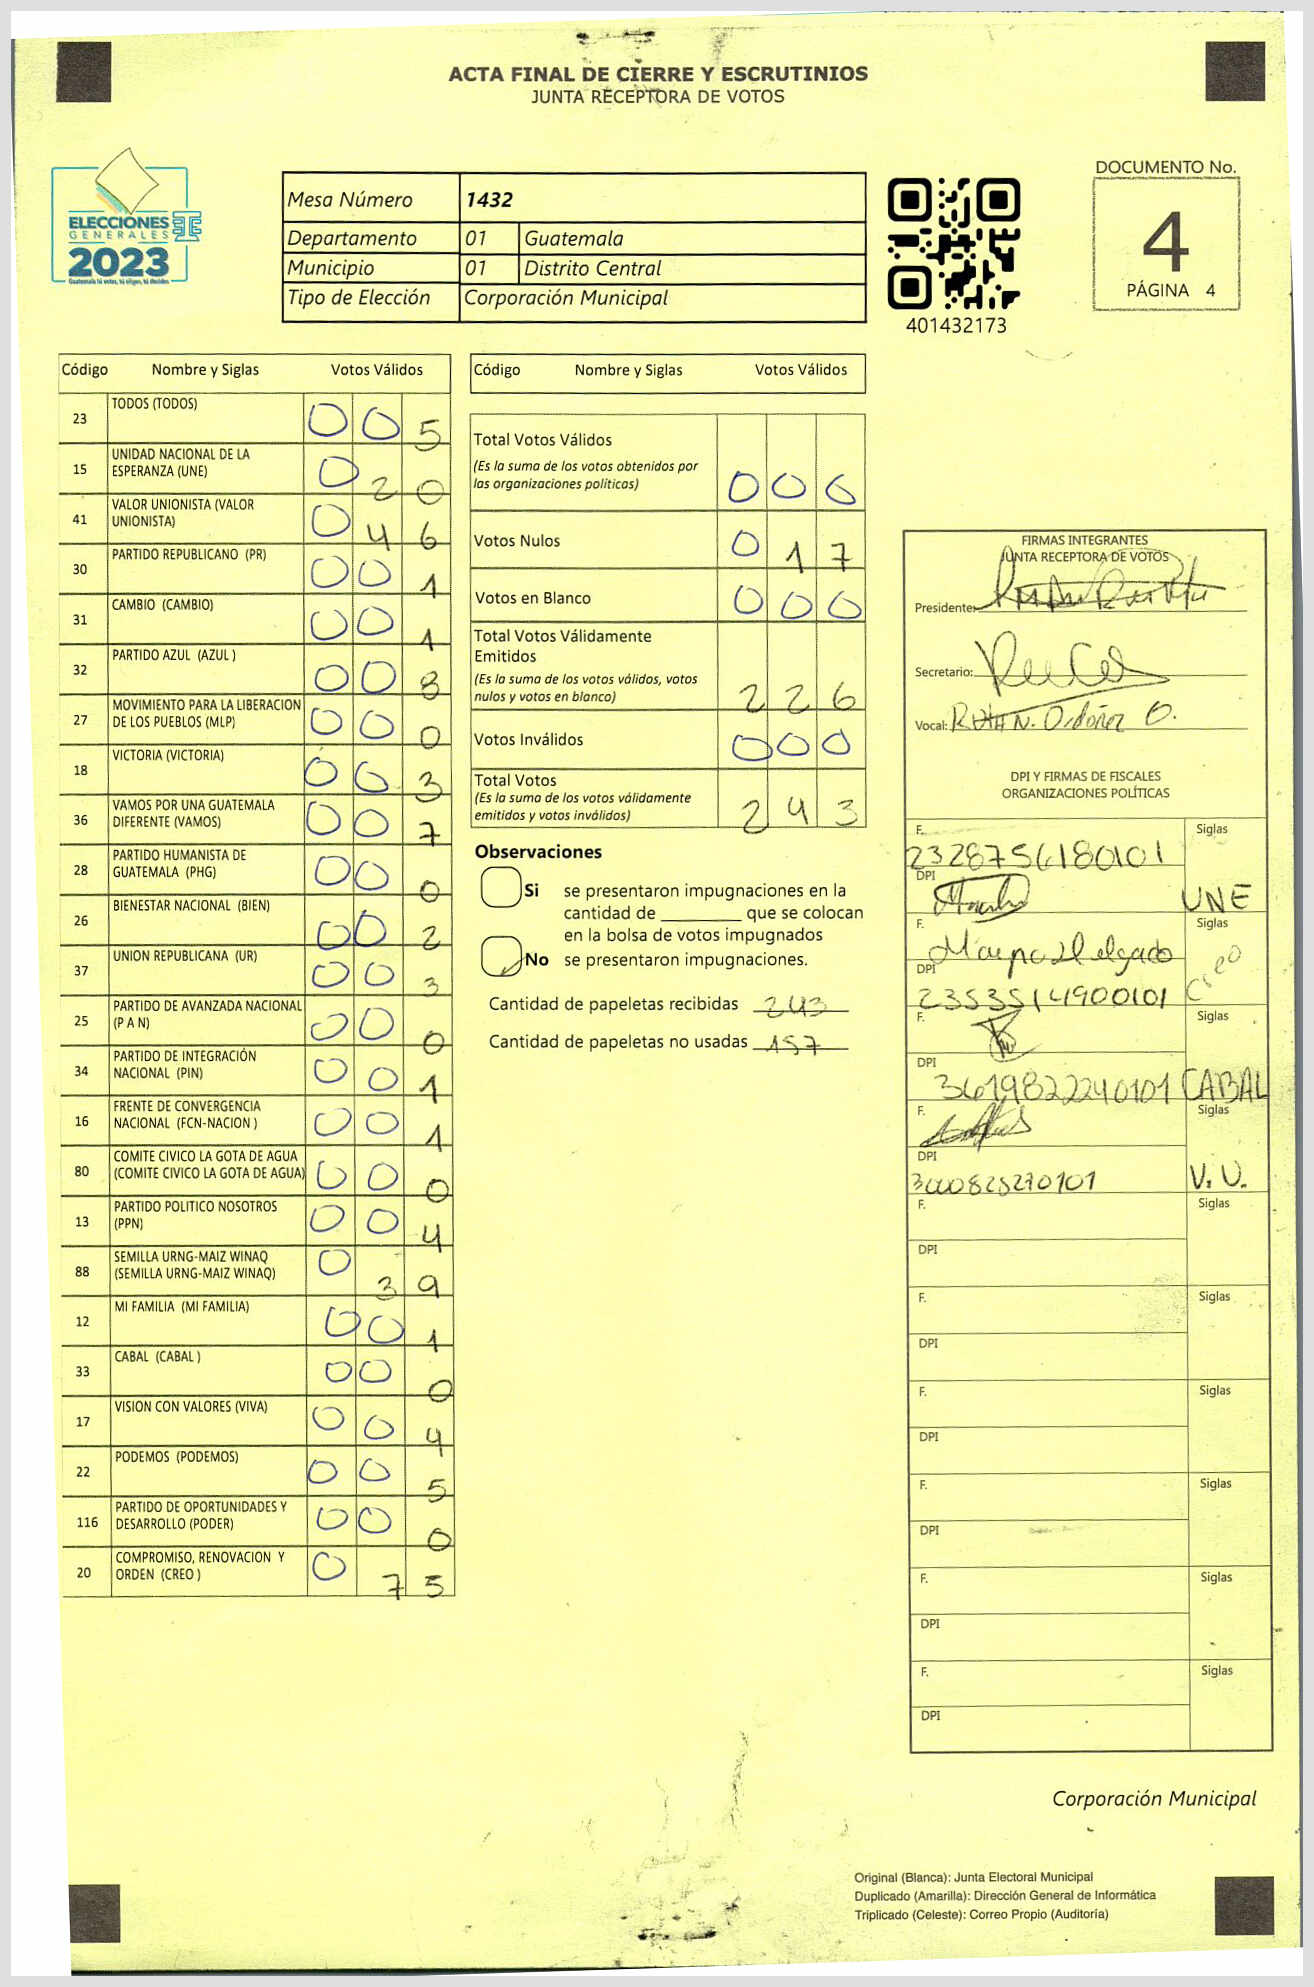 ACTA FINAL DE CIERRE Y ESCRUTINIOS
JUNTA RECEPTORA DE VOTOS
ELECCIONES
GENERALES
2023
Guatemala tú votas, tú eliges, tú decides
Mesa Número 1432
Departamento 01 Guatemala
Municipio 01 Distrito Central
Tipo de Elección Corporación Municipal
401432173
DOCUMENTO No.
4
PÁGINA 4
Código Nombre y Siglas Votos Válidos
23 TODOS (TODOS) 0 0 5
15 UNIDAD NACIONAL DE LA ESPERANZA (UNE) 0 2 0
41 VALOR UNIONISTA (VALOR UNIONISTA) 0 4 6
30 PARTIDO REPUBLICANO (PR) 0 0 1
31 CAMBIO (CAMBIO) 0 0 1
32 PARTIDO AZUL (AZUL ) 0 0 8
27 MOVIMIENTO PARA LA LIBERACION DE LOS PUEBLOS (MLP) 0 0 0
18 VICTORIA (VICTORIA) 0 0 3
36 VAMOS POR UNA GUATEMALA DIFERENTE (VAMOS) 0 0 7
28 PARTIDO HUMANISTA DE GUATEMALA (PHG) 0 0 0
26 BIENESTAR NACIONAL (BIEN) 0 0 2
37 UNION REPUBLICANA (UR) 0 0 3
25 PARTIDO DE AVANZADA NACIONAL (P A N) 0 0 0
34 PARTIDO DE INTEGRACIÓN NACIONAL (PIN) 0 0 1
16 FRENTE DE CONVERGENCIA NACIONAL (FCN-NACION ) 0 0 1
80 COMITE CIVICO LA GOTA DE AGUA (COMITE CIVICO LA GOTA DE AGUA) 0 0 0
13 PARTIDO POLITICO NOSOTROS (PPN) 0 0 4
88 SEMILLA URNG-MAIZ WINAQ (SEMILLA URNG-MAIZ WINAQ) 0 3 9
12 MI FAMILIA (MI FAMILIA) 0 0 1
33 CABAL (CABAL ) 0 0 0
17 VISION CON VALORES (VIVA) 0 0 4
22 PODEMOS (PODEMOS) 0 0 5
116 PARTIDO DE OPORTUNIDADES Y DESARROLLO (PODER) 0 0 0
20 COMPROMISO, RENOVACION Y ORDEN (CREO ) 0 7 5
Código Nombre y Siglas Votos Válidos
Total Votos Válidos
(Es la suma de los votos obtenidos por
las organizaciones políticas) 0 0 6
Votos Nulos 0 1 7
Votos en Blanco 0 0 0
Total Votos Válidamente
Emitidos
(Es la suma de los votos válidos, votos
nulos y votos en blanco) 2 2 6
Votos Inválidos 0 0 0
Total Votos
(Es la suma de los votos válidamente
emitidos y votos inválidos) 2 4 3
Observaciones
Si se presentaron impugnaciones en la
cantidad de ________ que se colocan
en la bolsa de votos impugnados
No se presentaron impugnaciones.
Cantidad de papeletas recibidas 243
Cantidad de papeletas no usadas 157
FIRMAS INTEGRANTES
JUNTA RECEPTORA DE VOTOS
Presidente:
Secretario:
Vocal: Ruth N. Ordoñez O.
DPI Y FIRMAS DE FISCALES
ORGANIZACIONES POLÍTICAS
F. Siglas
2328756180101
DPI
UNE
F. Siglas
Delgado
DPI
2353514900101 Creo
F. Siglas
DPI
3619822240101 CABAL
F. Siglas
DPI
3000825270101 V.U.
F. Siglas
DPI
F. Siglas
DPI
F. Siglas
DPI
F. Siglas
DPI
F. Siglas
DPI
F. Siglas
DPI
Corporación Municipal
Original (Blanca): Junta Electoral Municipal
Duplicado (Amarilla): Dirección General de Informática
Triplicado (Celeste): Correo Propio (Auditoría)